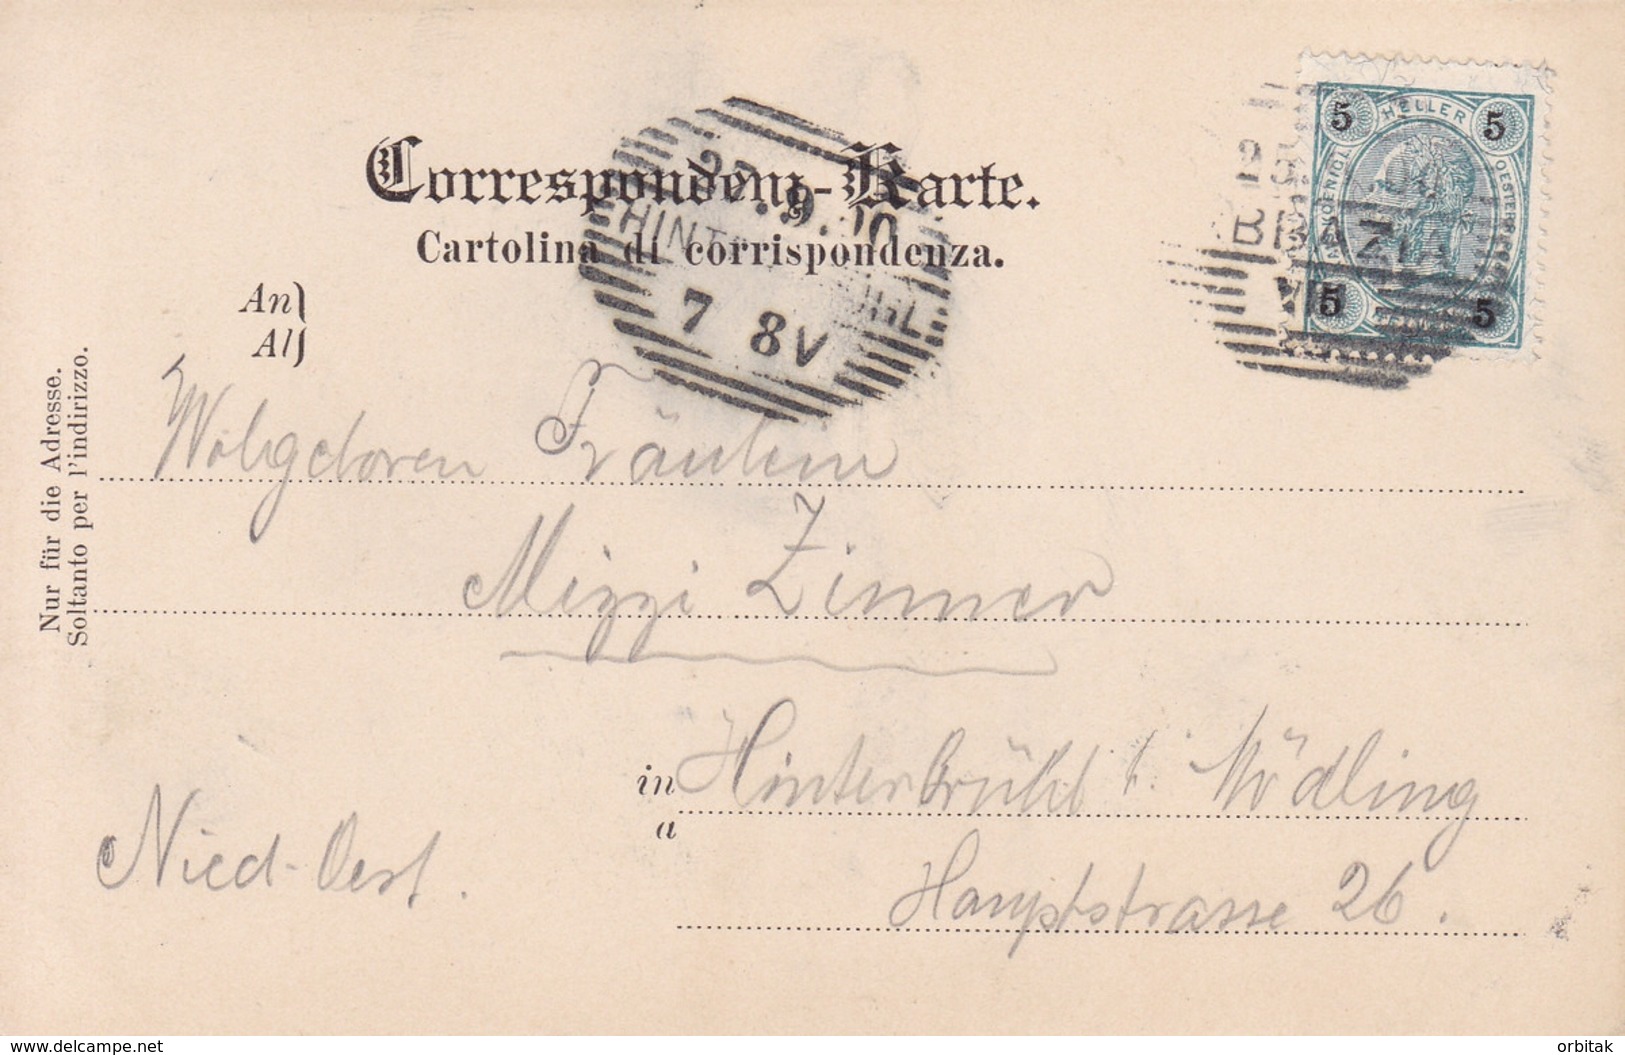 Correspondenz-Karte.
Cartolina di corrispondenza.
An
Al
Nur für die Adresse.
Soltanto per l'indirizzo.
HINT
7 8V
5 HELLER 5
5 5
Wohlgeboren Fräulein
Mizzi Zinner
in
a
Hinterbrühl b. Mödling
Nied-Oest.
Hauptstrasse 26.
delcampe.net
orbitak